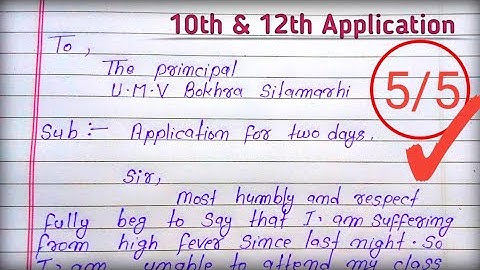 10th & 12th Application
To,
The principal
U.M.V Bokhra Sitamarhi
5/5
Sub:- Application for two days.
Sir,
Most humbly and respect
fully beg to say that I am suffering
from high fever since last night. So
I am unable to attend my class